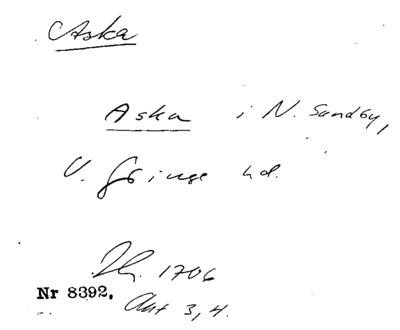 Aska
Aska i N. Sandby,
V. Göinge hd.
Jb. 1706
Nr 8392. Akt 3, 4.